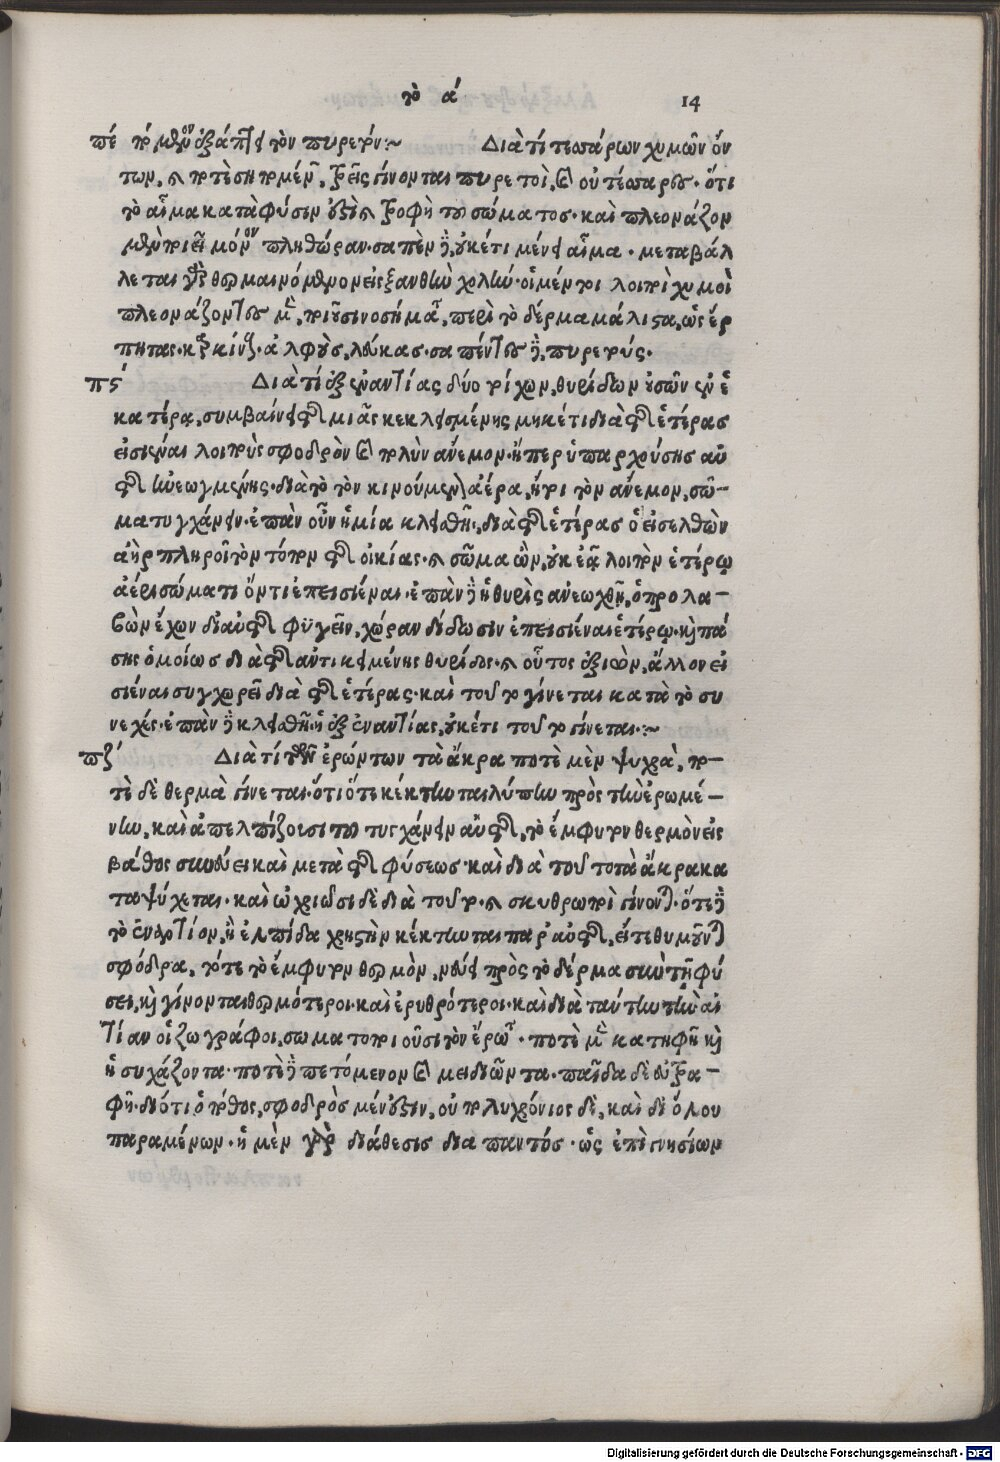 τὸ α´
14
πέ τὸ μὴ ἐξάπτειν τὸν πυρετόν:~ Διὰ τί τεσσάρων χυμῶν ὄν
των, καὶ τότε σηπομένων, τρεῖς γίνονται πυρετοὶ, καὶ οὐ τέσσαρες. ὅτι
τὸ αἷμα κατὰ φύσιν ἐστὶ καὶ τροφὴ τοῦ σώματος. καὶ πλεονάζον
ποιεῖ μόνον πληθώραν. σαπὲν δὲ, οὐκέτι μένει αἷμα. μεταβάλ
λεται γὰρ θερμαινόμενον εἰς ξανθὴν χολήν. οἱ μέντοι λοιποὶ χυμοὶ
πλεονάζοντες μὲν, ποιοῦσι νοσήματα, περὶ τὸ δέρμα μάλιστα, ὡς ἕρ
πητας. καρκίνους. ἀλφοὺς, λεύκας. σαπέντες δὲ, πυρετούς.
πς´ Διὰ τί ἐξ ἐναντίας δύο τοίχων, θυρίδων οὐσῶν ἐν ἑ
κατέρᾳ, συμβαίνει τῆς μιᾶς κεκλεισμένης μηκέτι διὰ τῆς ἑτέρας
εἰσιέναι λοιπὸν σφοδρὸν καὶ πολὺν ἄνεμον. ἤπερ ὑπαρχούσης αὐ
τῆς ἠνεωγμένης. διὰ τὸ τὸν κινούμενον ἀέρα, ἤτοι τὸν ἄνεμον, σῶ-
μα τυγχάνειν. ἐπὰν οὖν ἡ μία κλεισθῇ, διὰ τῆς ἑτέρας ὁ εἰσελθὼν
ἀὴρ πληροῖ τὸν τόπον τῆς οἰκίας. καὶ σῶμα ὢν, οὐκ ἐᾷ λοιπὸν ἑτέρῳ
ἀέρι σώματι ὄντι ἐπεισιέναι. ἐπὰν δὲ ἡ θυρὶς ἀνεωχθῇ, ὁ προλα-
βὼν ἔχων δι' αὐτῆς φυγεῖν, χώραν δίδωσιν ἐπεισιέναι ἑτέρῳ. καὶ πά
σης ὁμοίως διὰ τῆς ἀντικειμένης θυρίδος. καὶ οὗτος ἐξιὼν, ἄλλον εἰ
σιέναι συγχωρεῖ διὰ τῆς ἑτέρας. καὶ τοῦτο γίνεται κατὰ τὸ συ
νεχές. ἐπὰν δὲ κλεισθῇ ἡ ἐξ ἐναντίας, οὐκέτι τοῦτο γίνεται.:~
πζ´ Διὰ τί τῶν ἐρώντων τὰ ἄκρα ποτὲ μὲν ψυχρὰ, πο-
τὲ δὲ θερμὰ γίνεται. ὅτι ὅτε κέκτηνται λύπην πρὸς τὴν ἐρωμέ-
νην, καὶ ἀπελπίζουσι τοῦ τυγχάνειν αὐτῆς, τὸ ἔμφυτον θερμὸν εἰς
βάθος συνδύει καὶ μετὰ τῆς φύσεως. καὶ διὰ τοῦτο τὰ ἄκρα κα
ταψύχεται. καὶ ὠχριῶσι δὲ διὰ τοῦτο. καὶ σκυθρωποὶ γίνονται. ὅτε δὲ
τὸ ἐναντίον, ἢ ἐλπίδα χρηστὴν κέκτηνται παρ' αὐτῆς, εἴτε θυμοῦνται
σφόδρα, τότε τὸ ἔμφυτον θερμὸν, νεύει πρὸς τὸ δέρμα σὺν τῇ φύ
σει, καὶ γίνονται θερμότεροι. καὶ ἐρυθρότεροι. καὶ διὰ ταύτην τὴν αἰ
τίαν οἱ ζωγράφοι, σωματοποιοῦσι τὸν ἔρωτα. ποτὲ μὲν κατηφῆ καὶ
ἡσυχάζοντα. ποτὲ δὲ πετόμενον καὶ μειδιῶντα. παῖδα δὲ εὐτρα-
φῆ. διότι ὁ πόθος, σφοδρὸς μέν ἐστιν, οὐ πολυχρόνιος δὲ, καὶ δι' ὅλου
παραμένων. ἡ μὲν γὰρ διάθεσις διαπαντός. ὡς ἐπὶ γνησίων